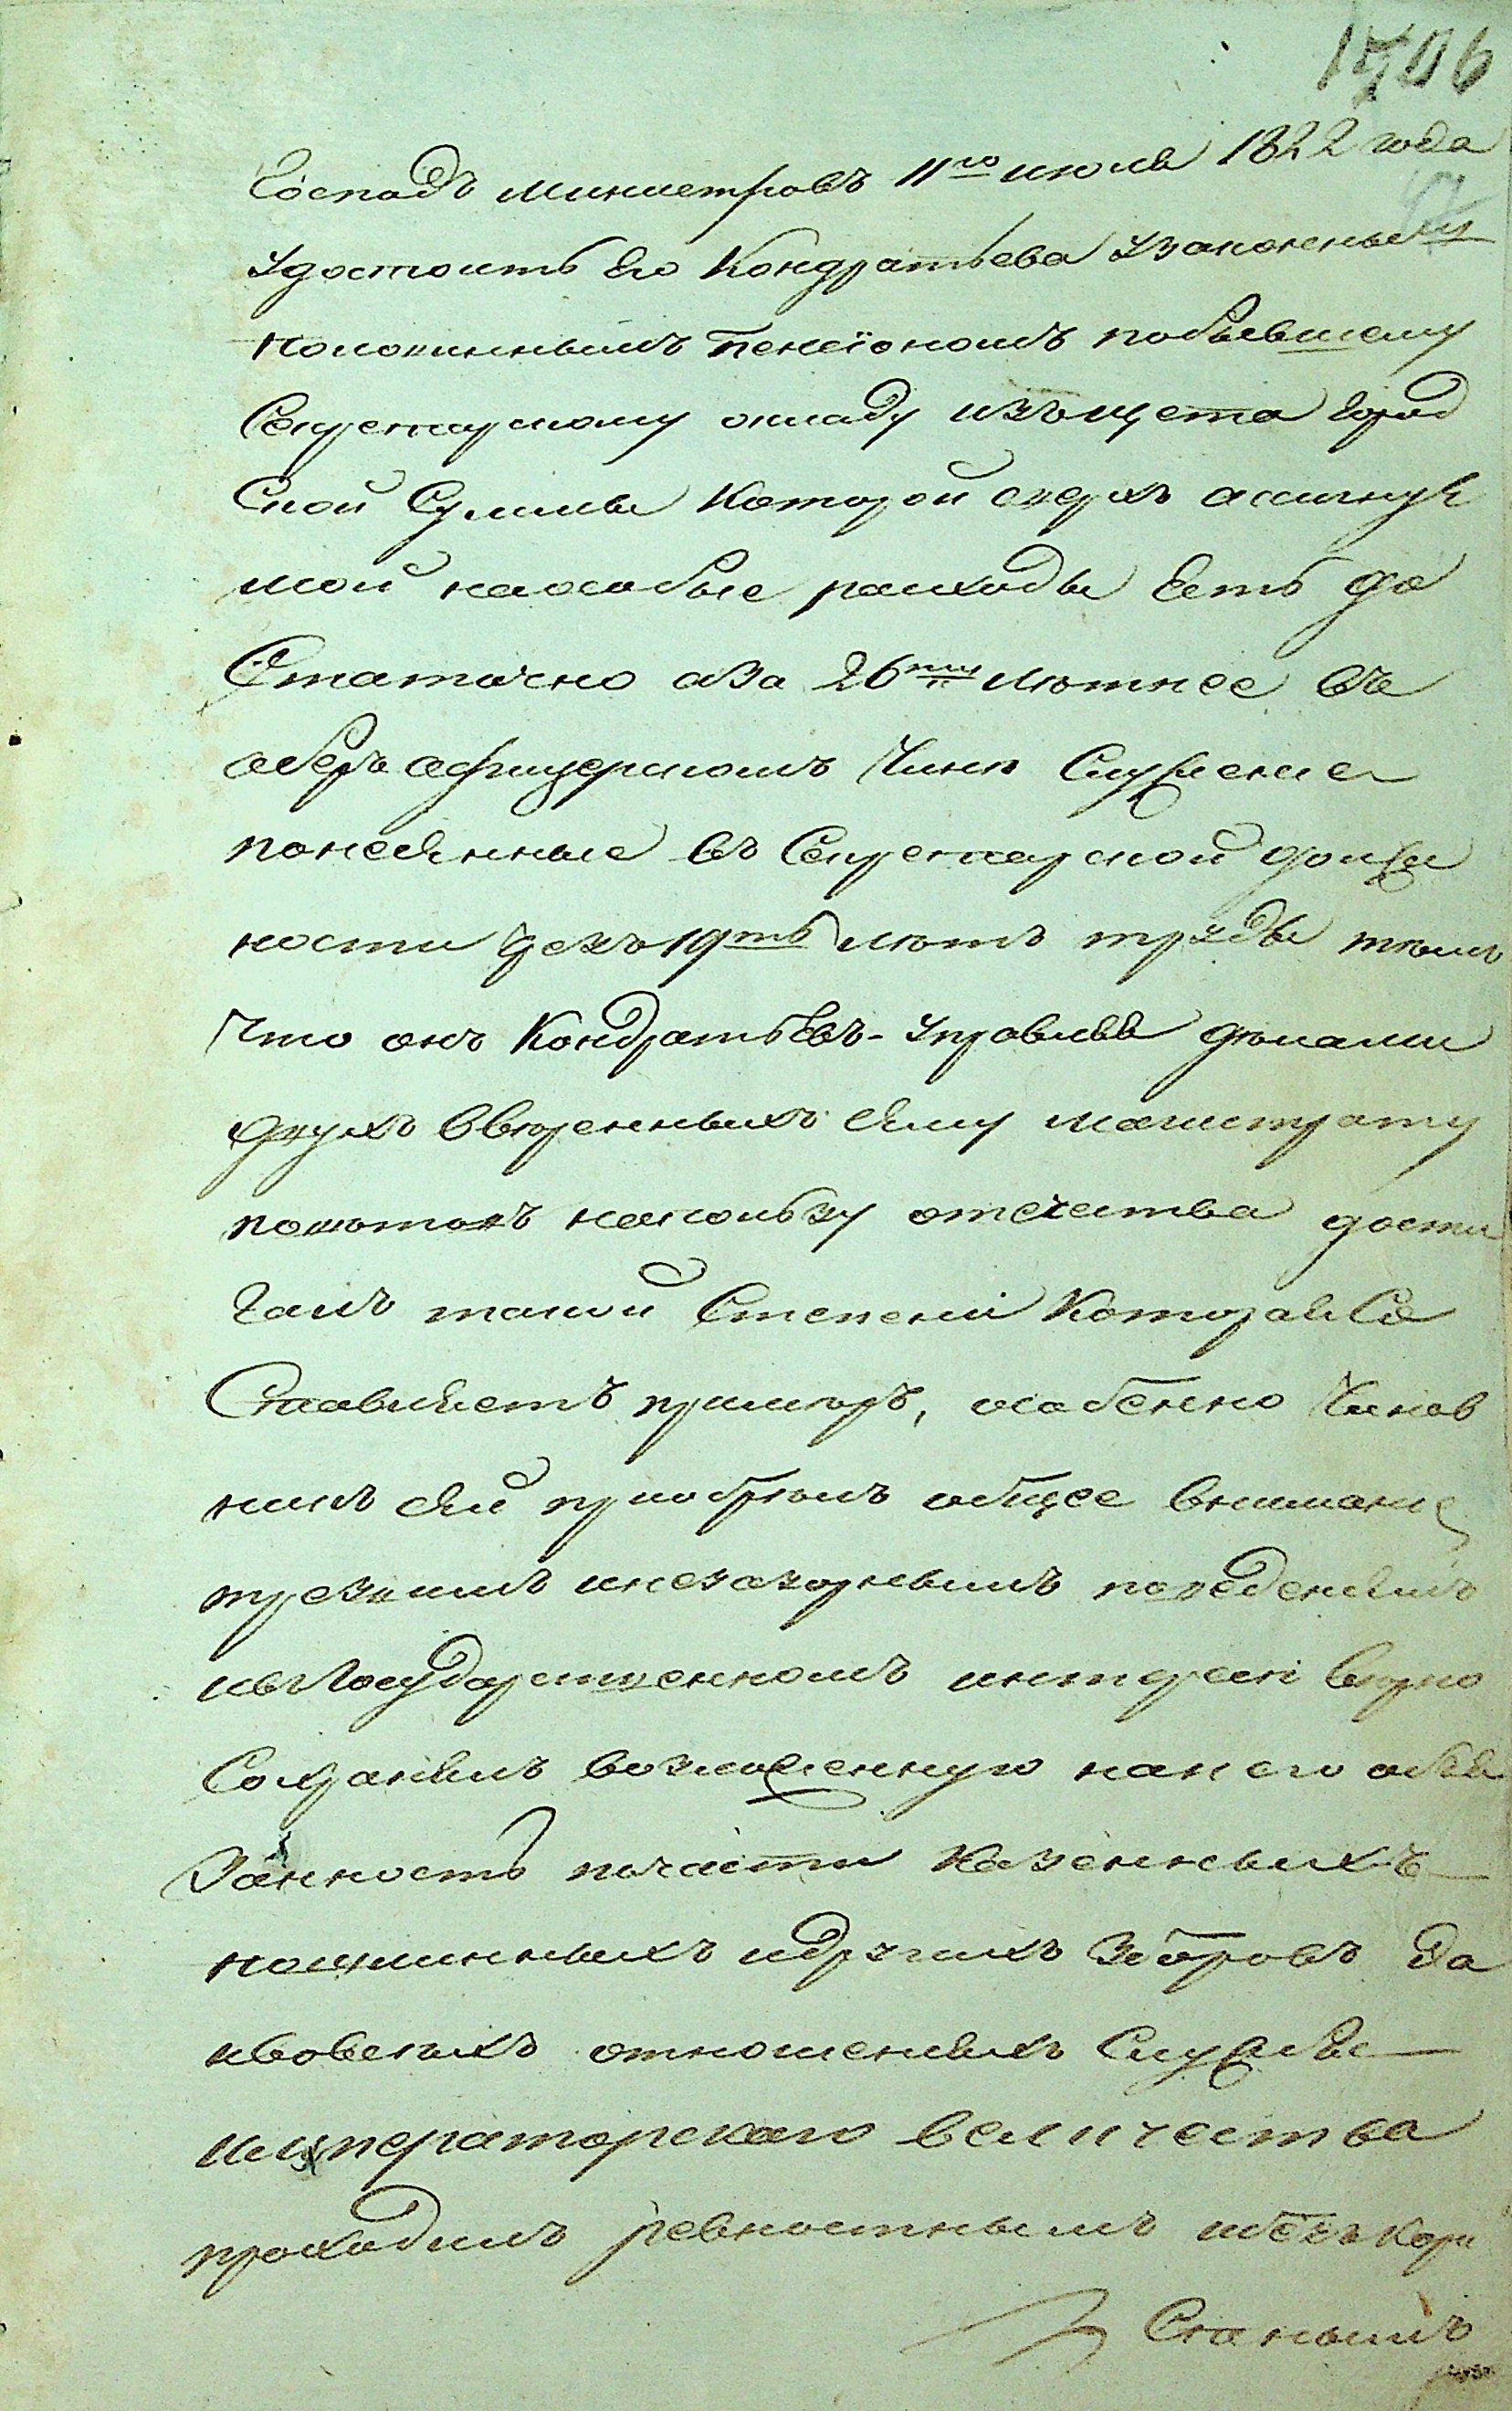 Господъ министровъ 11го июля 1822 года
удостоить Его Кондратьева узаконенным
половиннымъ пенсіономъ побывшему
Секретарскому окладу изъщета город
Ской Суммы Которой сверхъ асигнуе
мой наособые расходы Есть до
Статочно аза 26ти лѣтнее въ
оберъ афицерскомъ Чинѣ Служение
понесенные въ Секретарской должн
ности чрезъ 19ть лѣтъ труды тѣмъ
Что онъ Кондратьевъ - управляя дѣлами
двухъ ввѣренныхъ ему магистрату
повѣтовъ напользу отечества дости
галъ такой Степени Котораясо
Ставляетъ примѣръ, особенно Чинов
никъ сей приобрѣлъ общее внимание
трезвымъ инезазорнымъ поведениямъ
ивъГосударственномъ интересі вѣрно
Сохранялъ возложенную нанего обя
занность почасти казенныхъ
пошлинныхъ идругихъ Зборовъ Да
ивовсехъ отношенияхъ Службы
императорскаго величества
проходилъ ревностнымъ ибезъкоры
Стнымъ